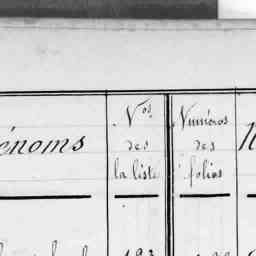 énoms
Nos
des
la liste
Numéros
des
folios